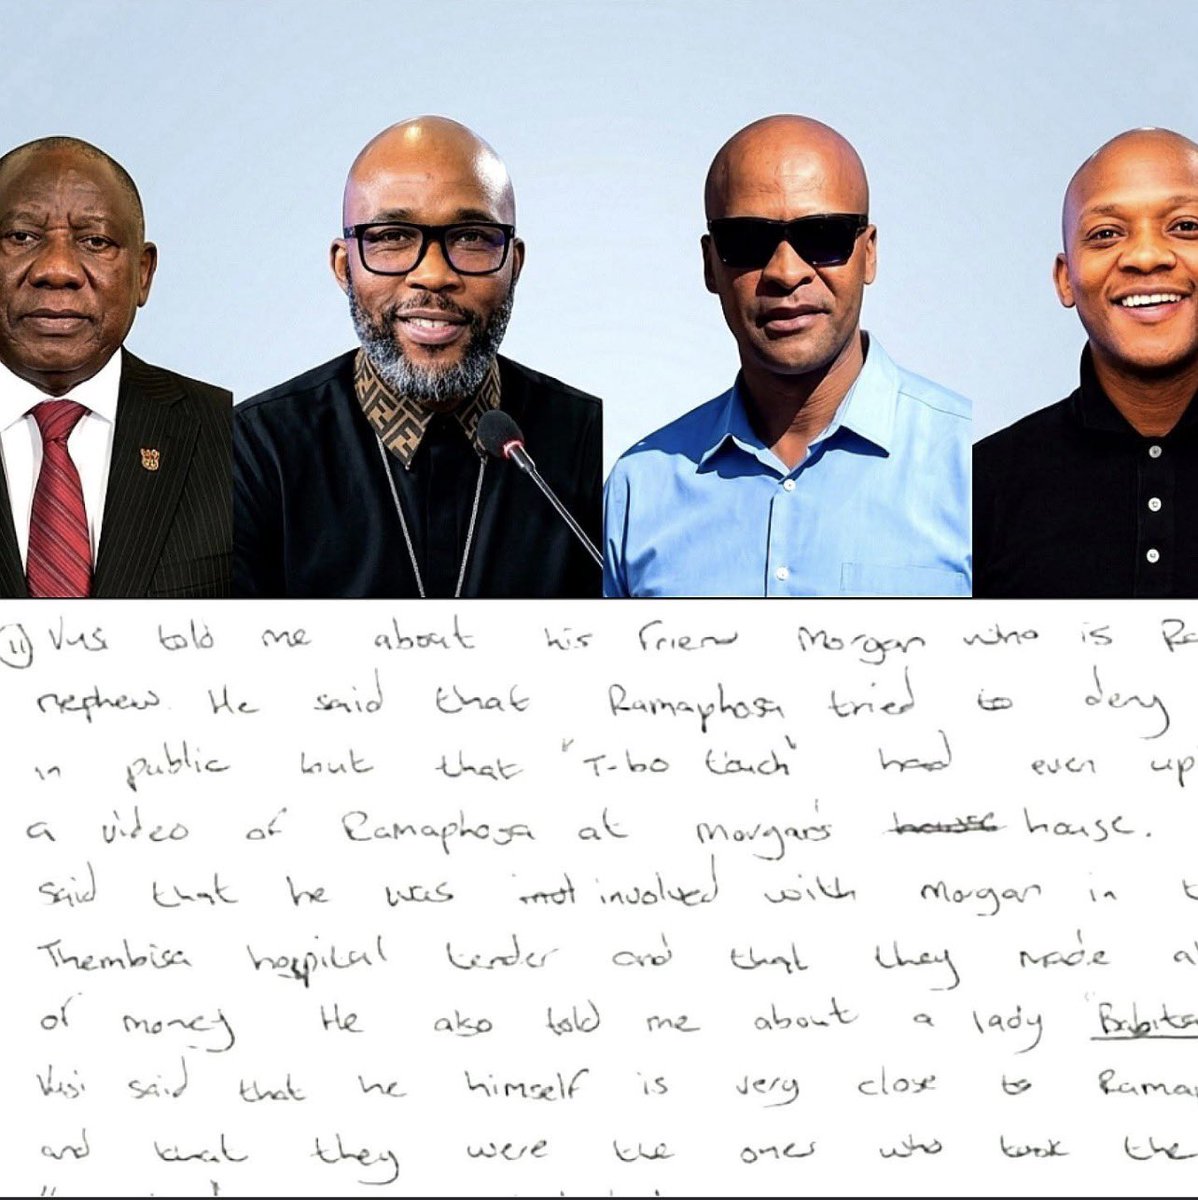 11) Vusi told me about his friend Morgan who is Ra
nephew. He said that Ramaphosa tried to deny
in public but that "T-bo touch" had even up
a video of Ramaphosa at Morgan's house house.
said that he was not involved with Morgan in t
Thembisa hospital tender and that they made a
of money He also told me about a lady "Babita
Vusi said that he himself is very close to Ramap
and that they were the ones who took the